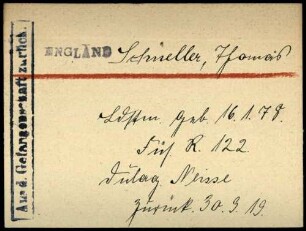 Aus d. Gefangenschaft zurück.
ENGLAND
Schneller, Thomas
Ldstm. geb. 16.1.78.
Füs. R. 122
Dulag Neisse
zurück. 30.9.19.